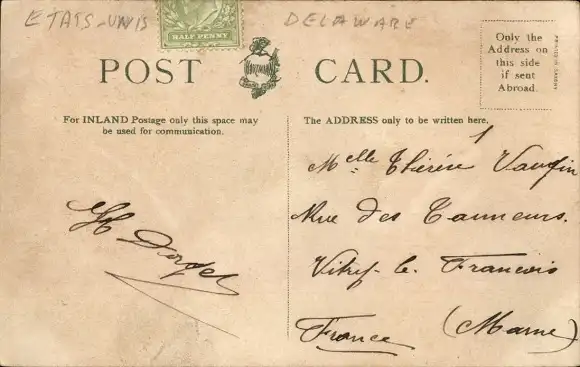 ETATS-UNIS DELAWARE
HALF PENNY
POST CARD.
Only the
Address on
this side
if sent
Abroad.
For INLAND Postage only this space may
be used for communication.
The ADDRESS only to be written here.
Melle Thérèse
Rue des Tanneurs.
Vitry-le-Francois
France (Marne)